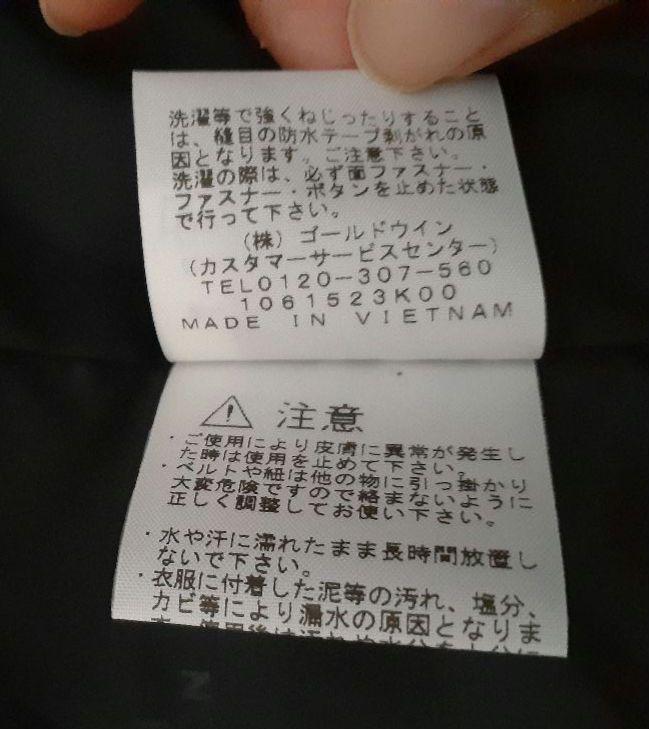 洗濯等で強くねじったりすること
は、縫目の防水テープ剥がれの原
因となります。ご注意下さい。
洗濯の際は、必ず面ファスナー・
ファスナー・ボタンを止めた状態
で行って下さい。
(株) ゴールドウイン
(カスタマーサービスセンター)
TEL0120-307-560
1061523K00
MADE IN VIETNAM
注意
・ご使用により皮膚に異常が発生し
た時は使用を止めて下さい。
・ベルトや紐は他の物に引っ掛かり
大変危険ですので絡まないように
正しく調整してお使い下さい。
・水や汗に濡れたまま長時間放置し
ないで下さい。
・衣服に付着した泥等の汚れ、塩分、
カビ等により漏水の原因となりま
す。使用後は汚れや水分を十分に